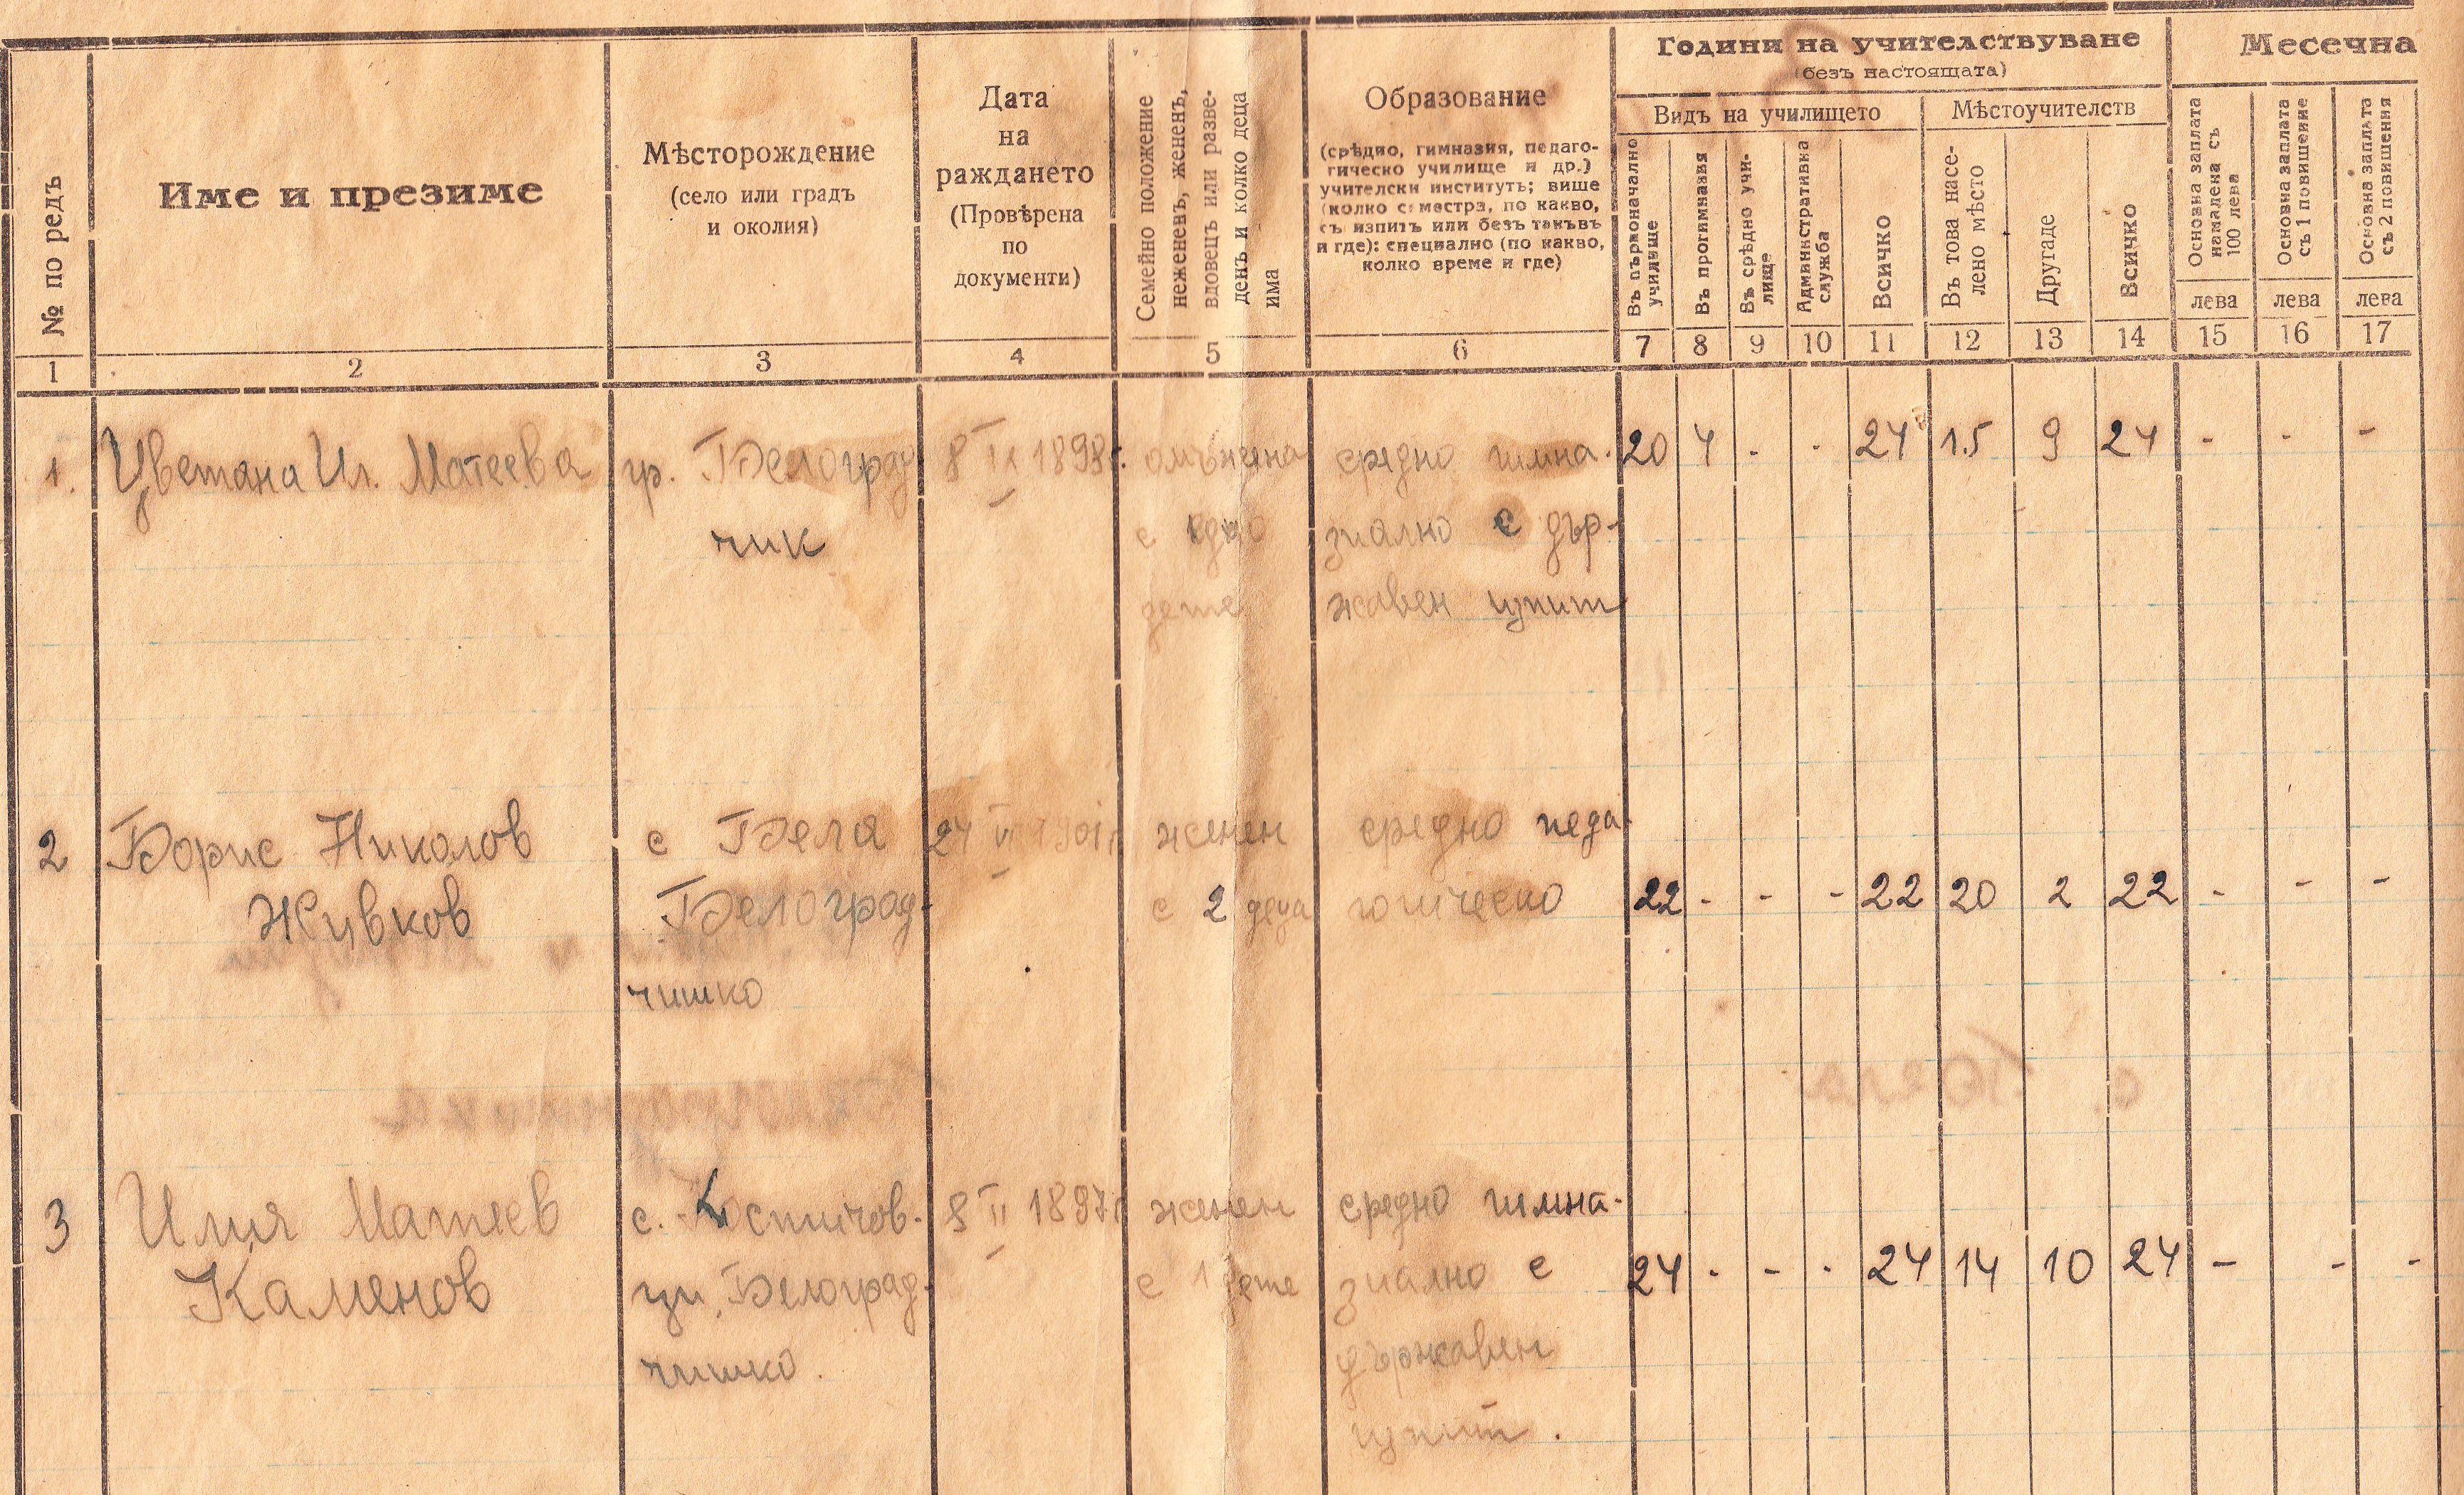 Години на учителствуване
Месечна
(безъ настоящата)
Видъ на училището
Мѣстоучителств
№ по редъ
Име и презиме
Мѣсторождение
(село или градъ
и околия)
Дата
на
раждането
(Провѣрена
по
документи)
Семейно положение
неженевъ, жененъ,
вдовецъ или разве-
денъ и колко деца
има
Образование
(срѣдно, гимназия, педаго-
гическо училище и др.)
учителски институтъ; више
(колко семестра, по какво,
съ изпитъ или безъ такъвъ
и где): специално (по какво,
колко време и где)
Въ първоначално
училище
Въ прогимназия
Въ срѣдно учи-
лище
Административна
служба
Всичко
Въ това насе-
лено мѣсто
Другаде
Всичко
Основна заплата
намалена съ
100 лева
Основна заплата
съ 1 повишение
Основна заплата
съ 2 повишения
лева лева лева
1 2 3 4 5 6 7 8 9 10 11 12 13 14 15 16 17
1. Цветана Ил. Матеева гр. Белоград 8 II 1898г. омъжена средно гимна- 20 4 - - 24 15 9 24 - - -
чик с едно зиално с дър-
дете жавен изпит
2 Борис Николов с Бела 24 VI 1901г женен средно педа-
Живков Белоград- с 2 деца гогическо 22 - - - 22 20 2 22 - - -
чишко
3 Илия Матеев с. Костичов- 8 II 1897г женен средно гимна-
Каменов ци, Белоград- с 1 дете зиално с 24 - - - 24 14 10 24 - - -
чишко. държавен
изпит.